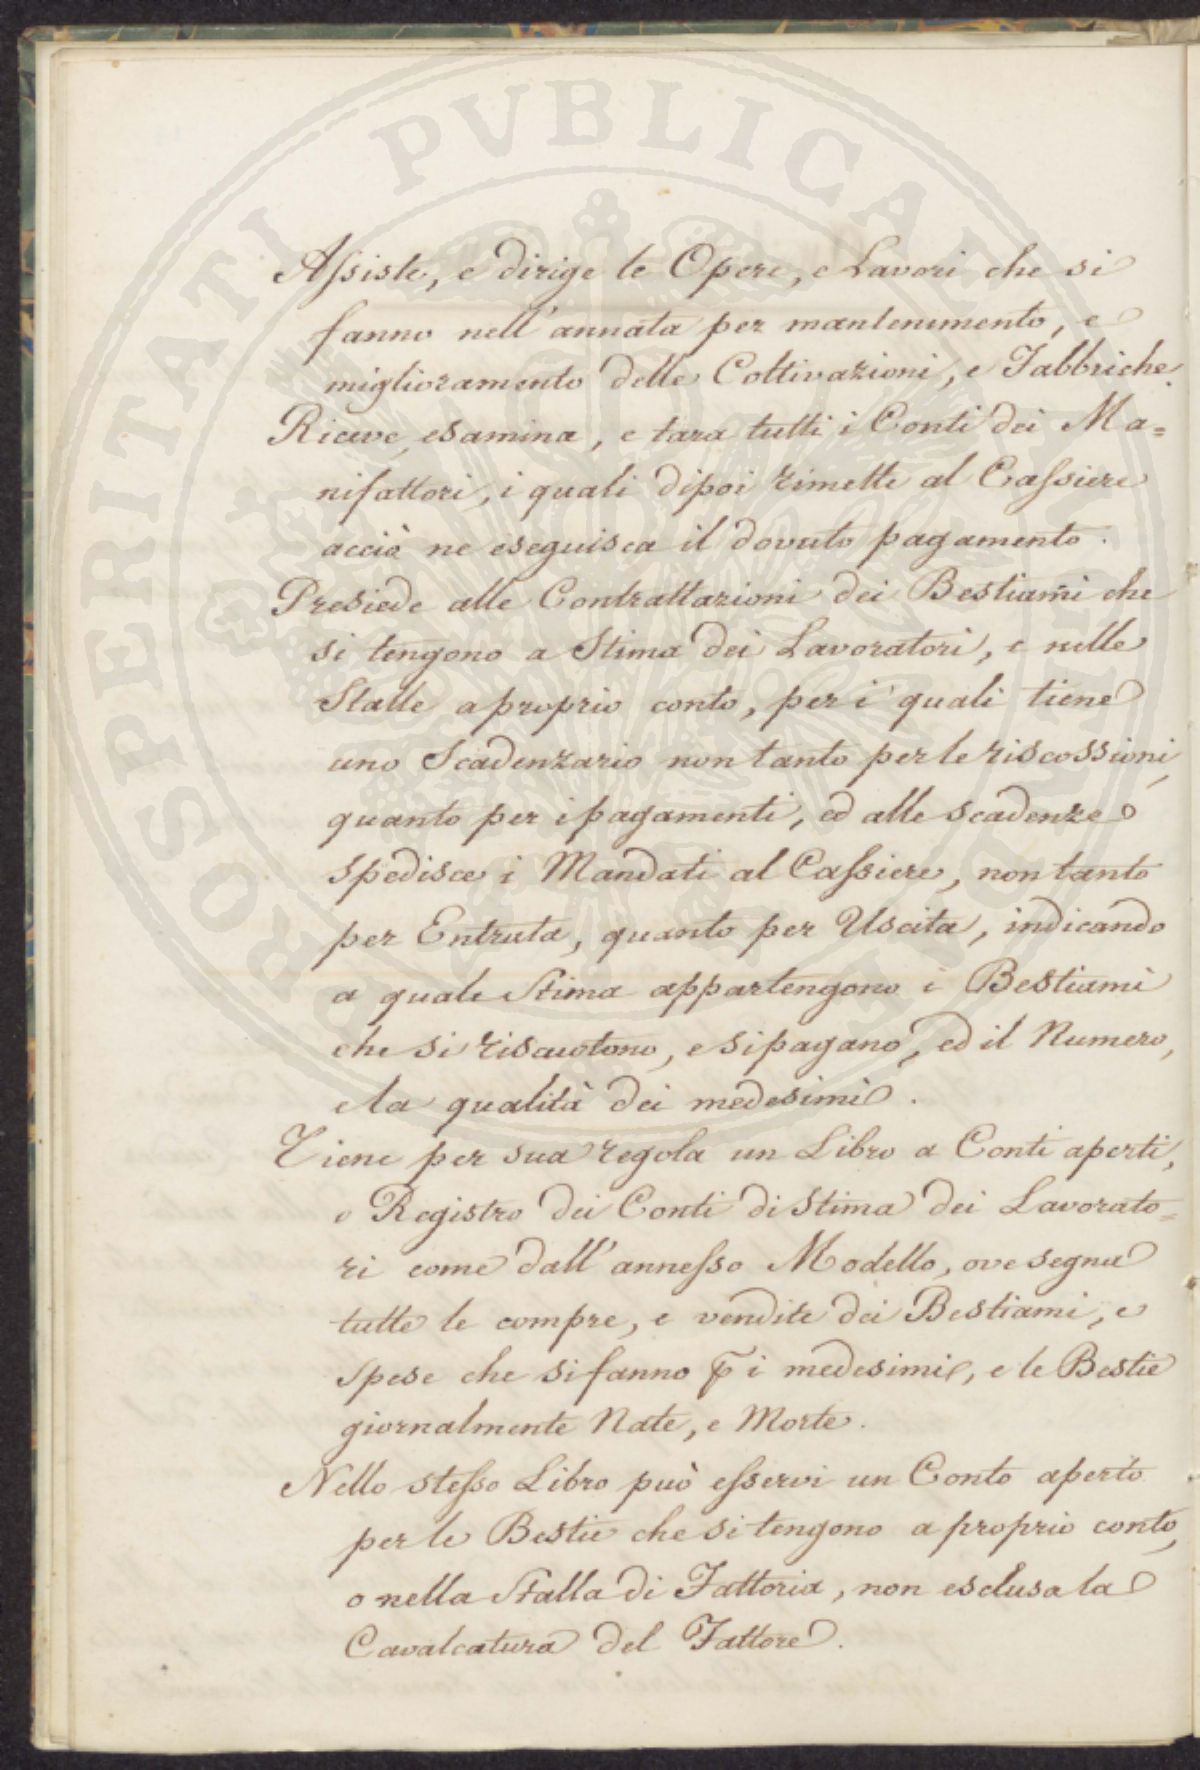 PROSPERITATI PVBLICAE
Assiste, e dirige le Opere, e Lavori che si
fanno nell'annata per mantenimento, e
miglioramento delle Coltivazioni, e Fabbriche.
Riceve, esamina, e tara tutti i Conti dei Ma=
nifattori, i quali dipoi rimette al Cassiere
acciò ne eseguisca il dovuto pagamento.
Presiede alle Contrattazioni dei Bestiami che
si tengono a Stima dei Lavoratori, e nelle
Stalle a proprio conto, per i quali tiene
uno Scadenzario non tanto per le riscossioni,
quanto per i pagamenti, ed alle scadenze
spedisce i Mandati al Cassiere, non tanto
per Entrata, quanto per Uscita, indicando
a quale Stima appartengono i Bestiami
che si riscuotono, e si pagano, ed il Numero,
e la qualità dei medesimi.
Tiene per sua regola un Libro a Conti aperti,
o Registro dei Conti di Stima dei Lavorato=
ri come dall'annesso Modello, ove segna
tutte le compre, e vendite dei Bestiami, e
spese che si fanno ꝑ i medesimi, e le Bestie
giornalmente Nate, e Morte.
Nello stesso Libro può esservi un Conto aperto
per le Bestie che si tengono a proprio conto,
o nella Stalla di Fattoria, non esclusa la
Cavalcatura del Fattore.